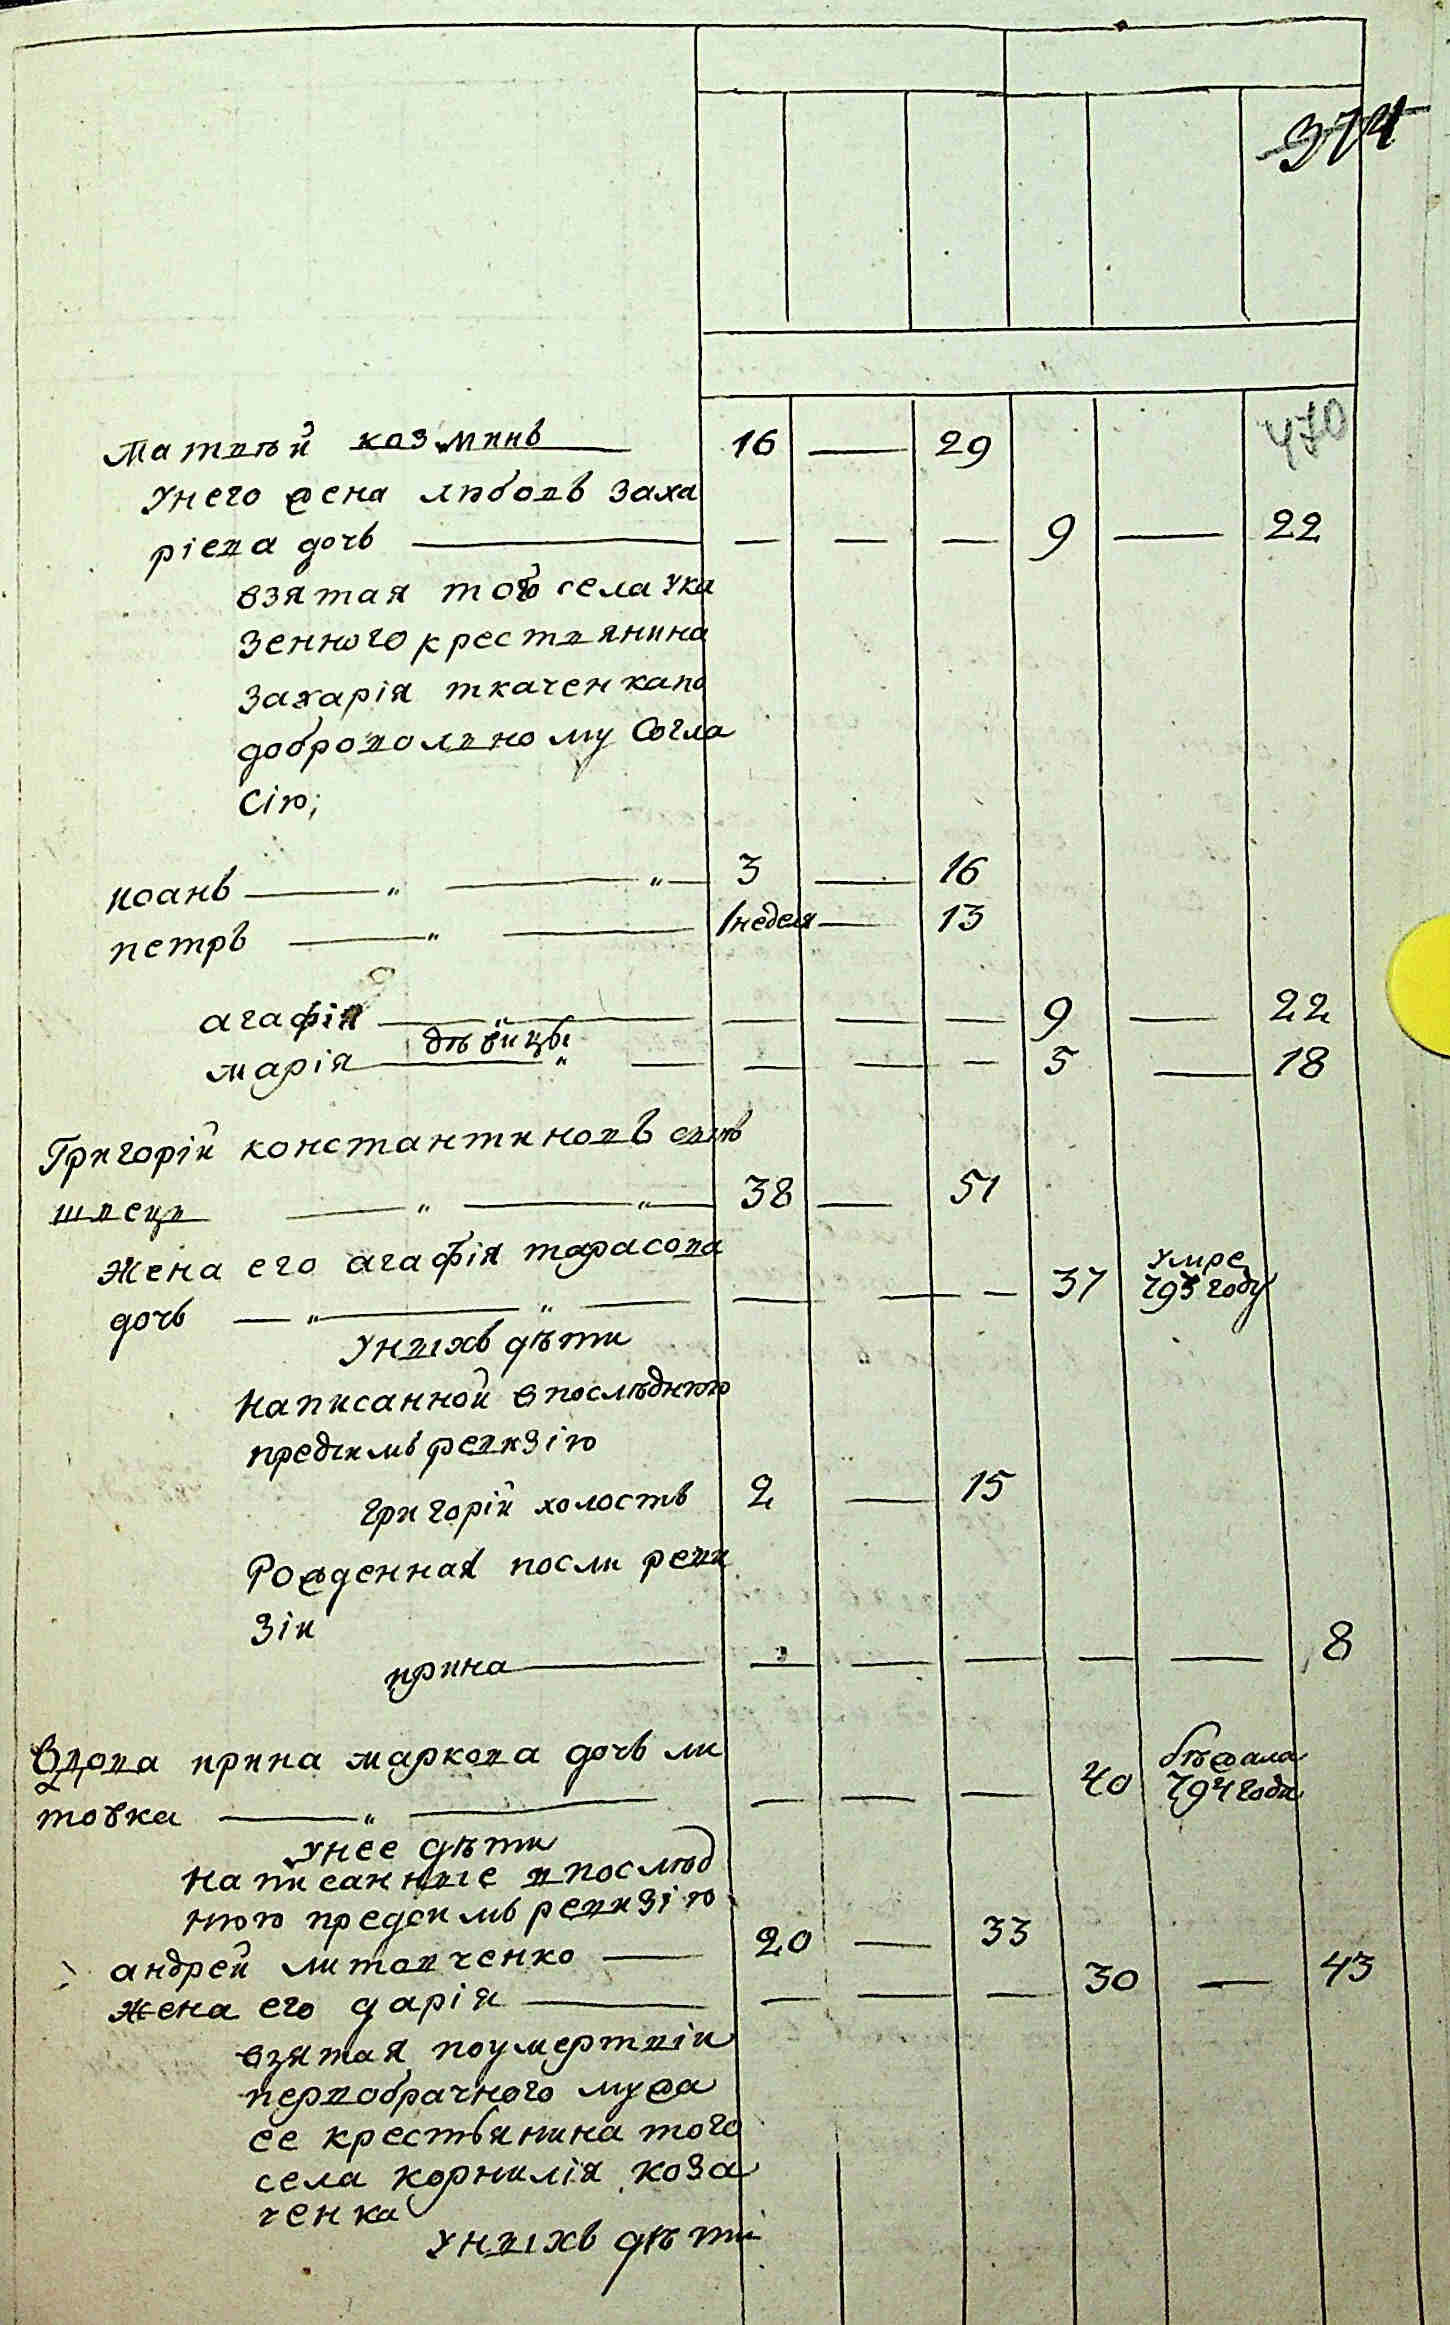 374
470
матвѣй козминъ 16 — 29
Унего жена любовъ заха
ріева дочъ — — — — 9 — 22
взятая того села Ука
зенного крествянина
захарія ткаченкапо
добровольному Согла
сію;
иоанъ — „ — „ — 3 — 16
петръ — „ — 1 неделя — 13
агафія — „ — — — — 9 — 22
дѣвицы
марія — „ — — — — 5 — 18
Григорій константиновъ сынъ
швецъ — „ — „ — 38 — 51
Жена его агафія тарасова
дочъ — „ — „ — — — — 37 умре 793 году
Унихъ дѣти
написанной впослѣднюю
предъимъ ревизію
григорій холостъ 2 — 15
Рожденная посли реви
зіи
ирина — — — — — — 8
Вдова ирина маркова дочъ ли
товка — „ — — — — 40 бѣжала 794 года
Унее дѣти
написанные впослѣд
нюю предсимъ ревизію
андрей литовченко — 20 — 33
жена его дарія — — — — 30 — 43
взятая поумертвіи
первобрачного мужа
ее крестьянина того
села корнилія коза
ченка
Унихъ дѣти